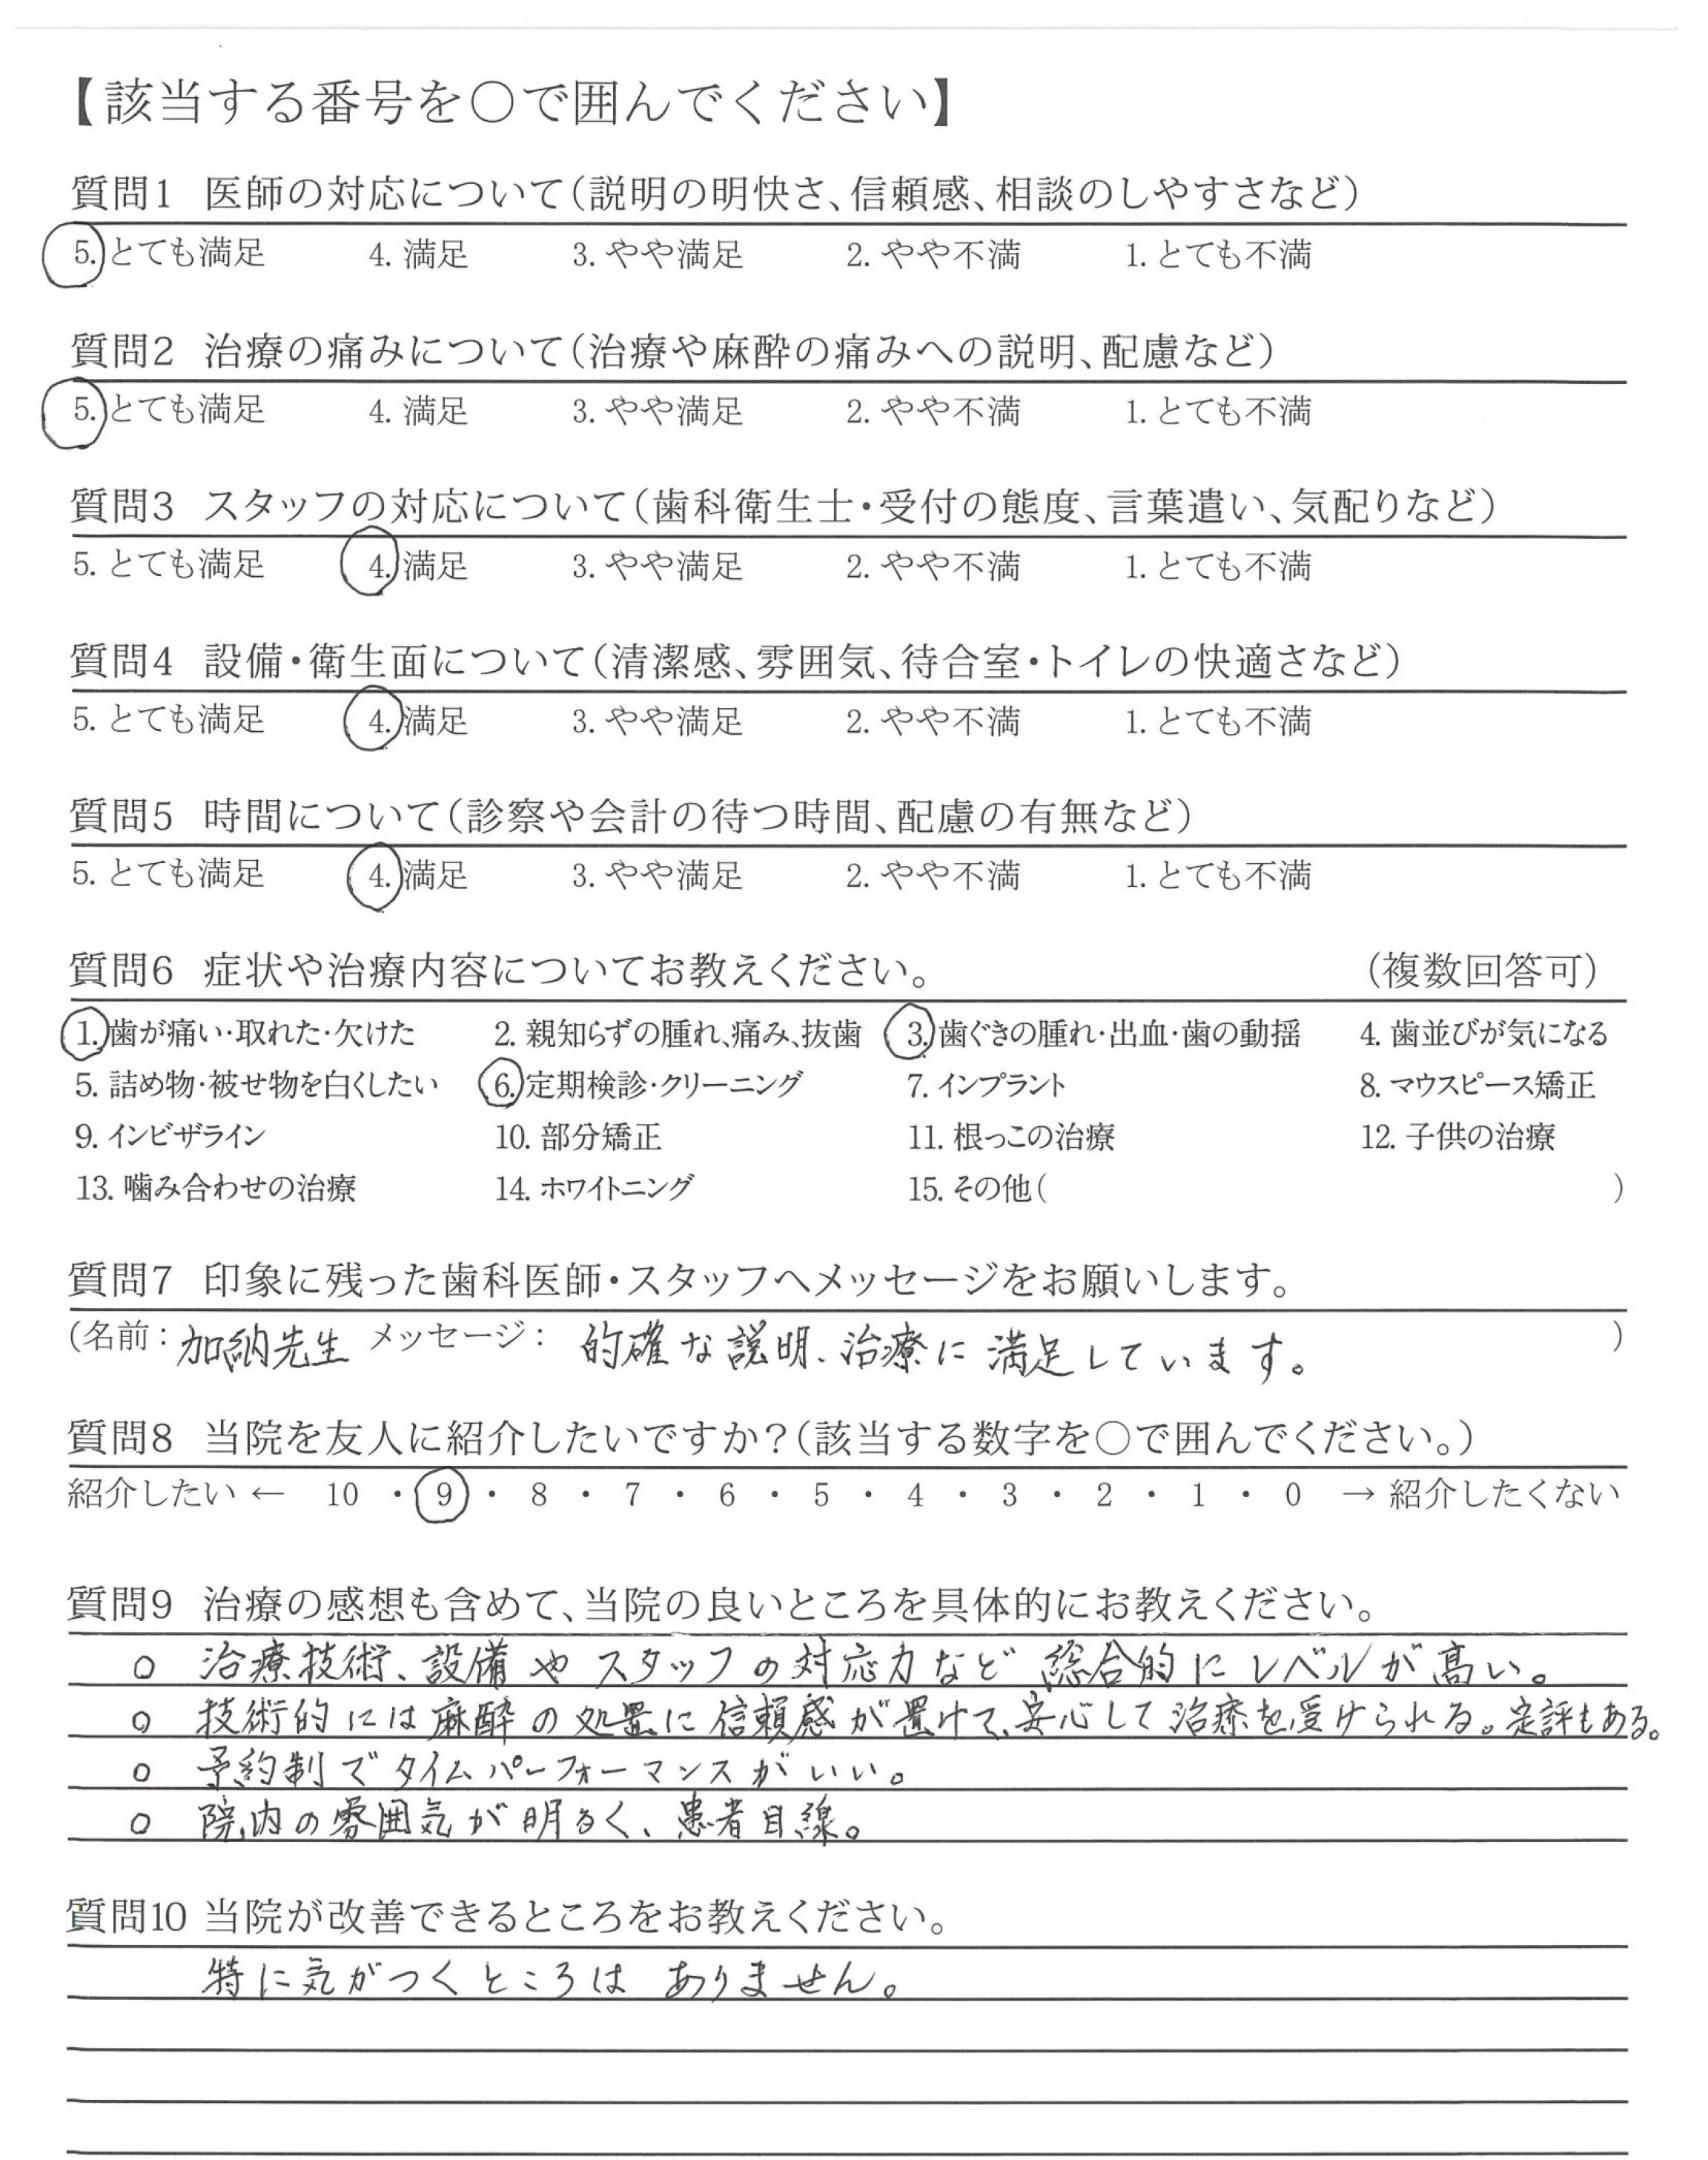 【該当する番号を○で囲んでください】
質問1 医師の対応について(説明の明快さ、信頼感、相談のしやすさなど)
5. とても満足 4. 満足 3. やや満足 2. やや不満 1. とても不満
質問2 治療の痛みについて(治療や麻酔の痛みへの説明、配慮など)
5. とても満足 4. 満足 3. やや満足 2. やや不満 1. とても不満
質問3 スタッフの対応について(歯科衛生士・受付の態度、言葉遣い、気配りなど)
5. とても満足 4. 満足 3. やや満足 2. やや不満 1. とても不満
質問4 設備・衛生面について(清潔感、雰囲気、待合室・トイレの快適さなど)
5. とても満足 4. 満足 3. やや満足 2. やや不満 1. とても不満
質問5 時間について(診察や会計の待つ時間、配慮の有無など)
5. とても満足 4. 満足 3. やや満足 2. やや不満 1. とても不満
質問6 症状や治療内容についてお教えください。 (複数回答可)
1. 歯が痛い・取れた・欠けた 2. 親知らずの腫れ、痛み、抜歯 3. 歯ぐきの腫れ・出血・歯の動揺 4. 歯並びが気になる
5. 詰め物・被せ物を白くしたい 6. 定期検診・クリーニング 7. インプラント 8. マウスピース矯正
9. インビザライン 10. 部分矯正 11. 根っこの治療 12. 子供の治療
13. 噛み合わせの治療 14. ホワイトニング 15. その他( )
質問7 印象に残った歯科医師・スタッフへメッセージをお願いします。
(名前: 加納先生 メッセージ: 的確な説明、治療に満足しています。 )
質問8 当院を友人に紹介したいですか?(該当する数字を○で囲んでください。)
紹介したい ← 10 ・ 9 ・ 8 ・ 7 ・ 6 ・ 5 ・ 4 ・ 3 ・ 2 ・ 1 ・ 0 → 紹介したくない
質問9 治療の感想も含めて、当院の良いところを具体的にお教えください。
○ 治療技術、設備やスタッフの対応力など総合的にレベルが高い。
○ 技術的には麻酔の処置に信頼感が置けて、安心して治療を受けられる。定評もある。
○ 予約制でタイムパーフォーマンスがいい。
○ 院内の雰囲気が明るく、患者目線。
質問10 当院が改善できるところをお教えください。
特に気がつくところはありません。